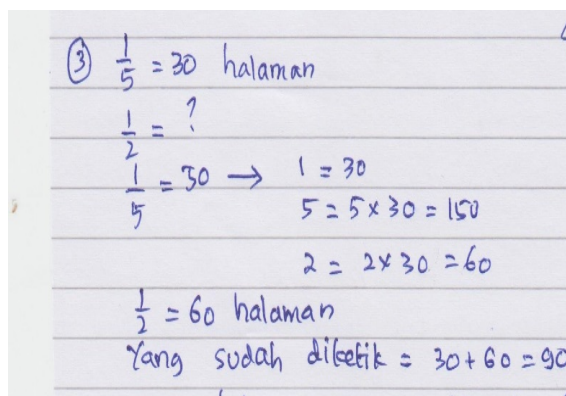 ③ 1/5 = 30 halaman
1/2 = ?
1/5 = 30 → 1 = 30
5 = 5 x 30 = 150
2 = 2 x 30 = 60
1/2 = 60 halaman
Yang sudah diketik = 30 + 60 = 90